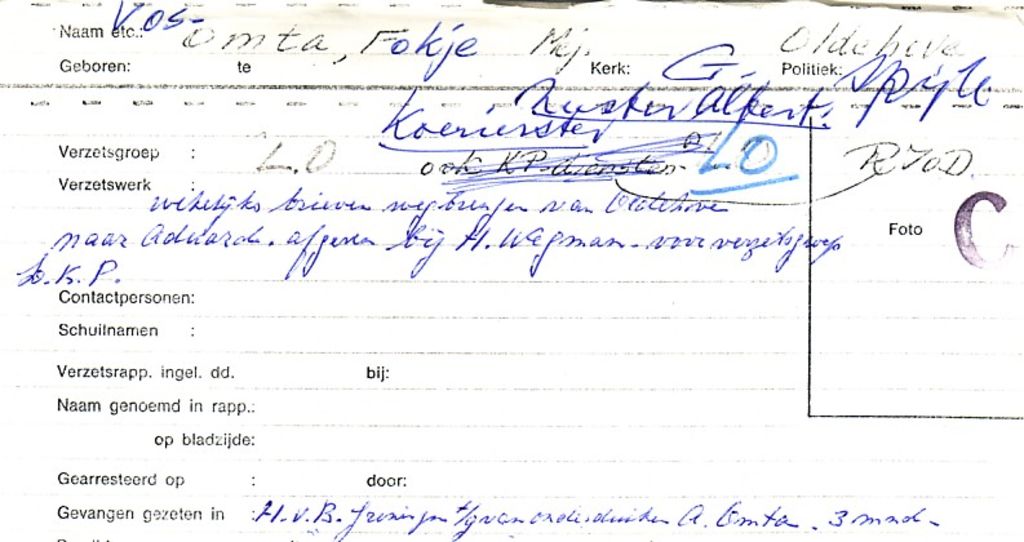 Vos-
Naam etc.: Omta, Fokje Mej. Oldehove
Geboren: te Kerk: G. Politiek:
Zuster Albert.
Koerierster
Verzetsgroep : L.O ook K.P. diensten LO RIOD.
Verzetswerk :
wekelijks brieven wegbrengen van Oldehove
naar Aduard. afgeven bij H. Wagman - voor verzetsgroep
L.K.P.
Foto C
Contactpersonen:
Schuilnamen :
Verzetsrapp. ingel. dd. bij:
Naam genoemd in rapp.:
op bladzijde:
Gearresteerd op : door:
Gevangen gezeten in : H.v.B. Groningen t/g van onderduiker A. Omta. 3 mnd-